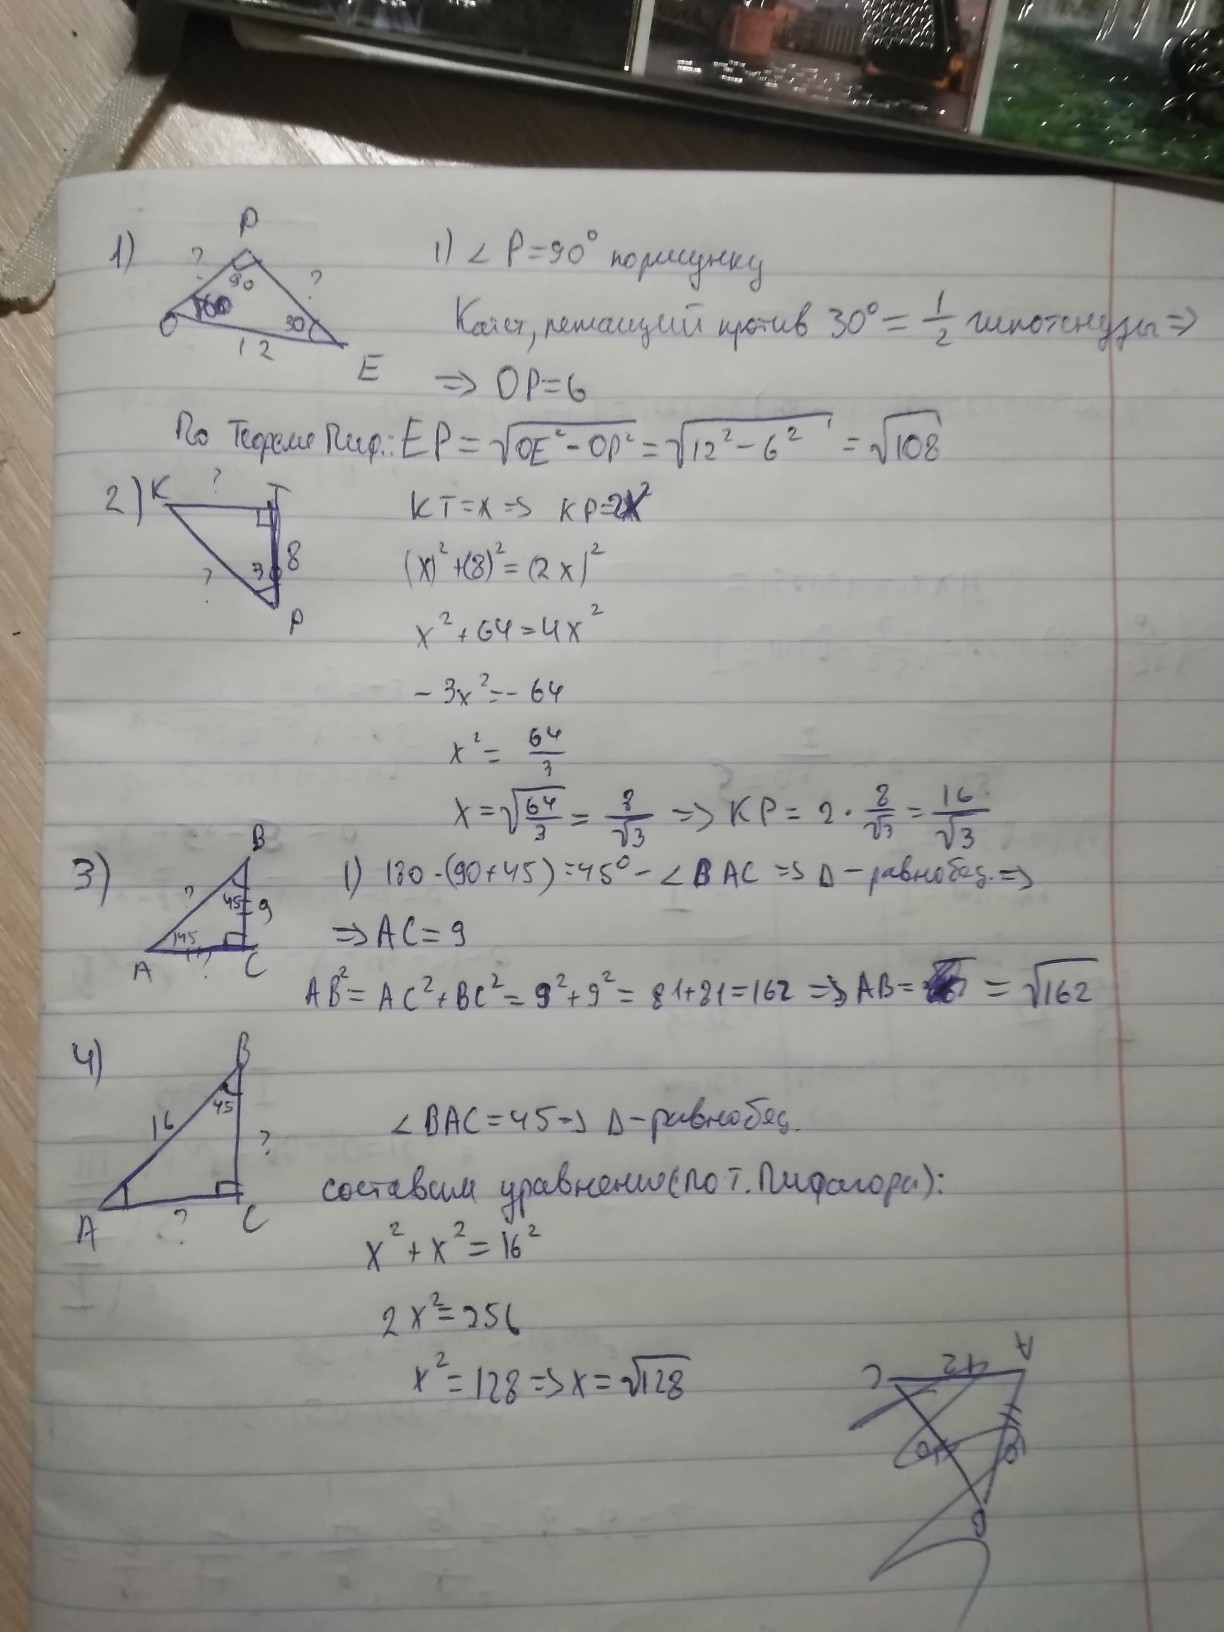 1) P ? 90 ? 60 30 O 12 E
1) ∠ P=90° по рисунку
Катет, лежащий против 30° = 1/2 гипотенузы ⇒
⇒ OP=6
По Теореме Пиф.: EP = √(OE² - OP²) = √(12² - 6²) = √108
2) K ? T 8 30 ? P
KT = x ⇒ KP=2x
(x)² + (8)² = (2x)²
x² + 64 = 4x²
- 3x² = - 64
x² = 64/3
x = √(64/3) = 8/√3 ⇒ KP = 2 · 8/√3 = 16/√3
3) B ? 45 9 45 A ? C
1) 180 - (90+45) = 45° - ∠ BAC ⇒ Δ - равнобед. ⇒
⇒ AC = 9
AB² = AC² + BC² = 9² + 9² = 81+81=162 ⇒ AB = = √162
4) B 45 16 ? A ? C
∠ BAC = 45 ⇒ Δ - равнобед.
составим уравнение (по т. Пифагора):
x² + x² = 16²
2x² = 256
x² = 128 ⇒ x = √128
A 12 C